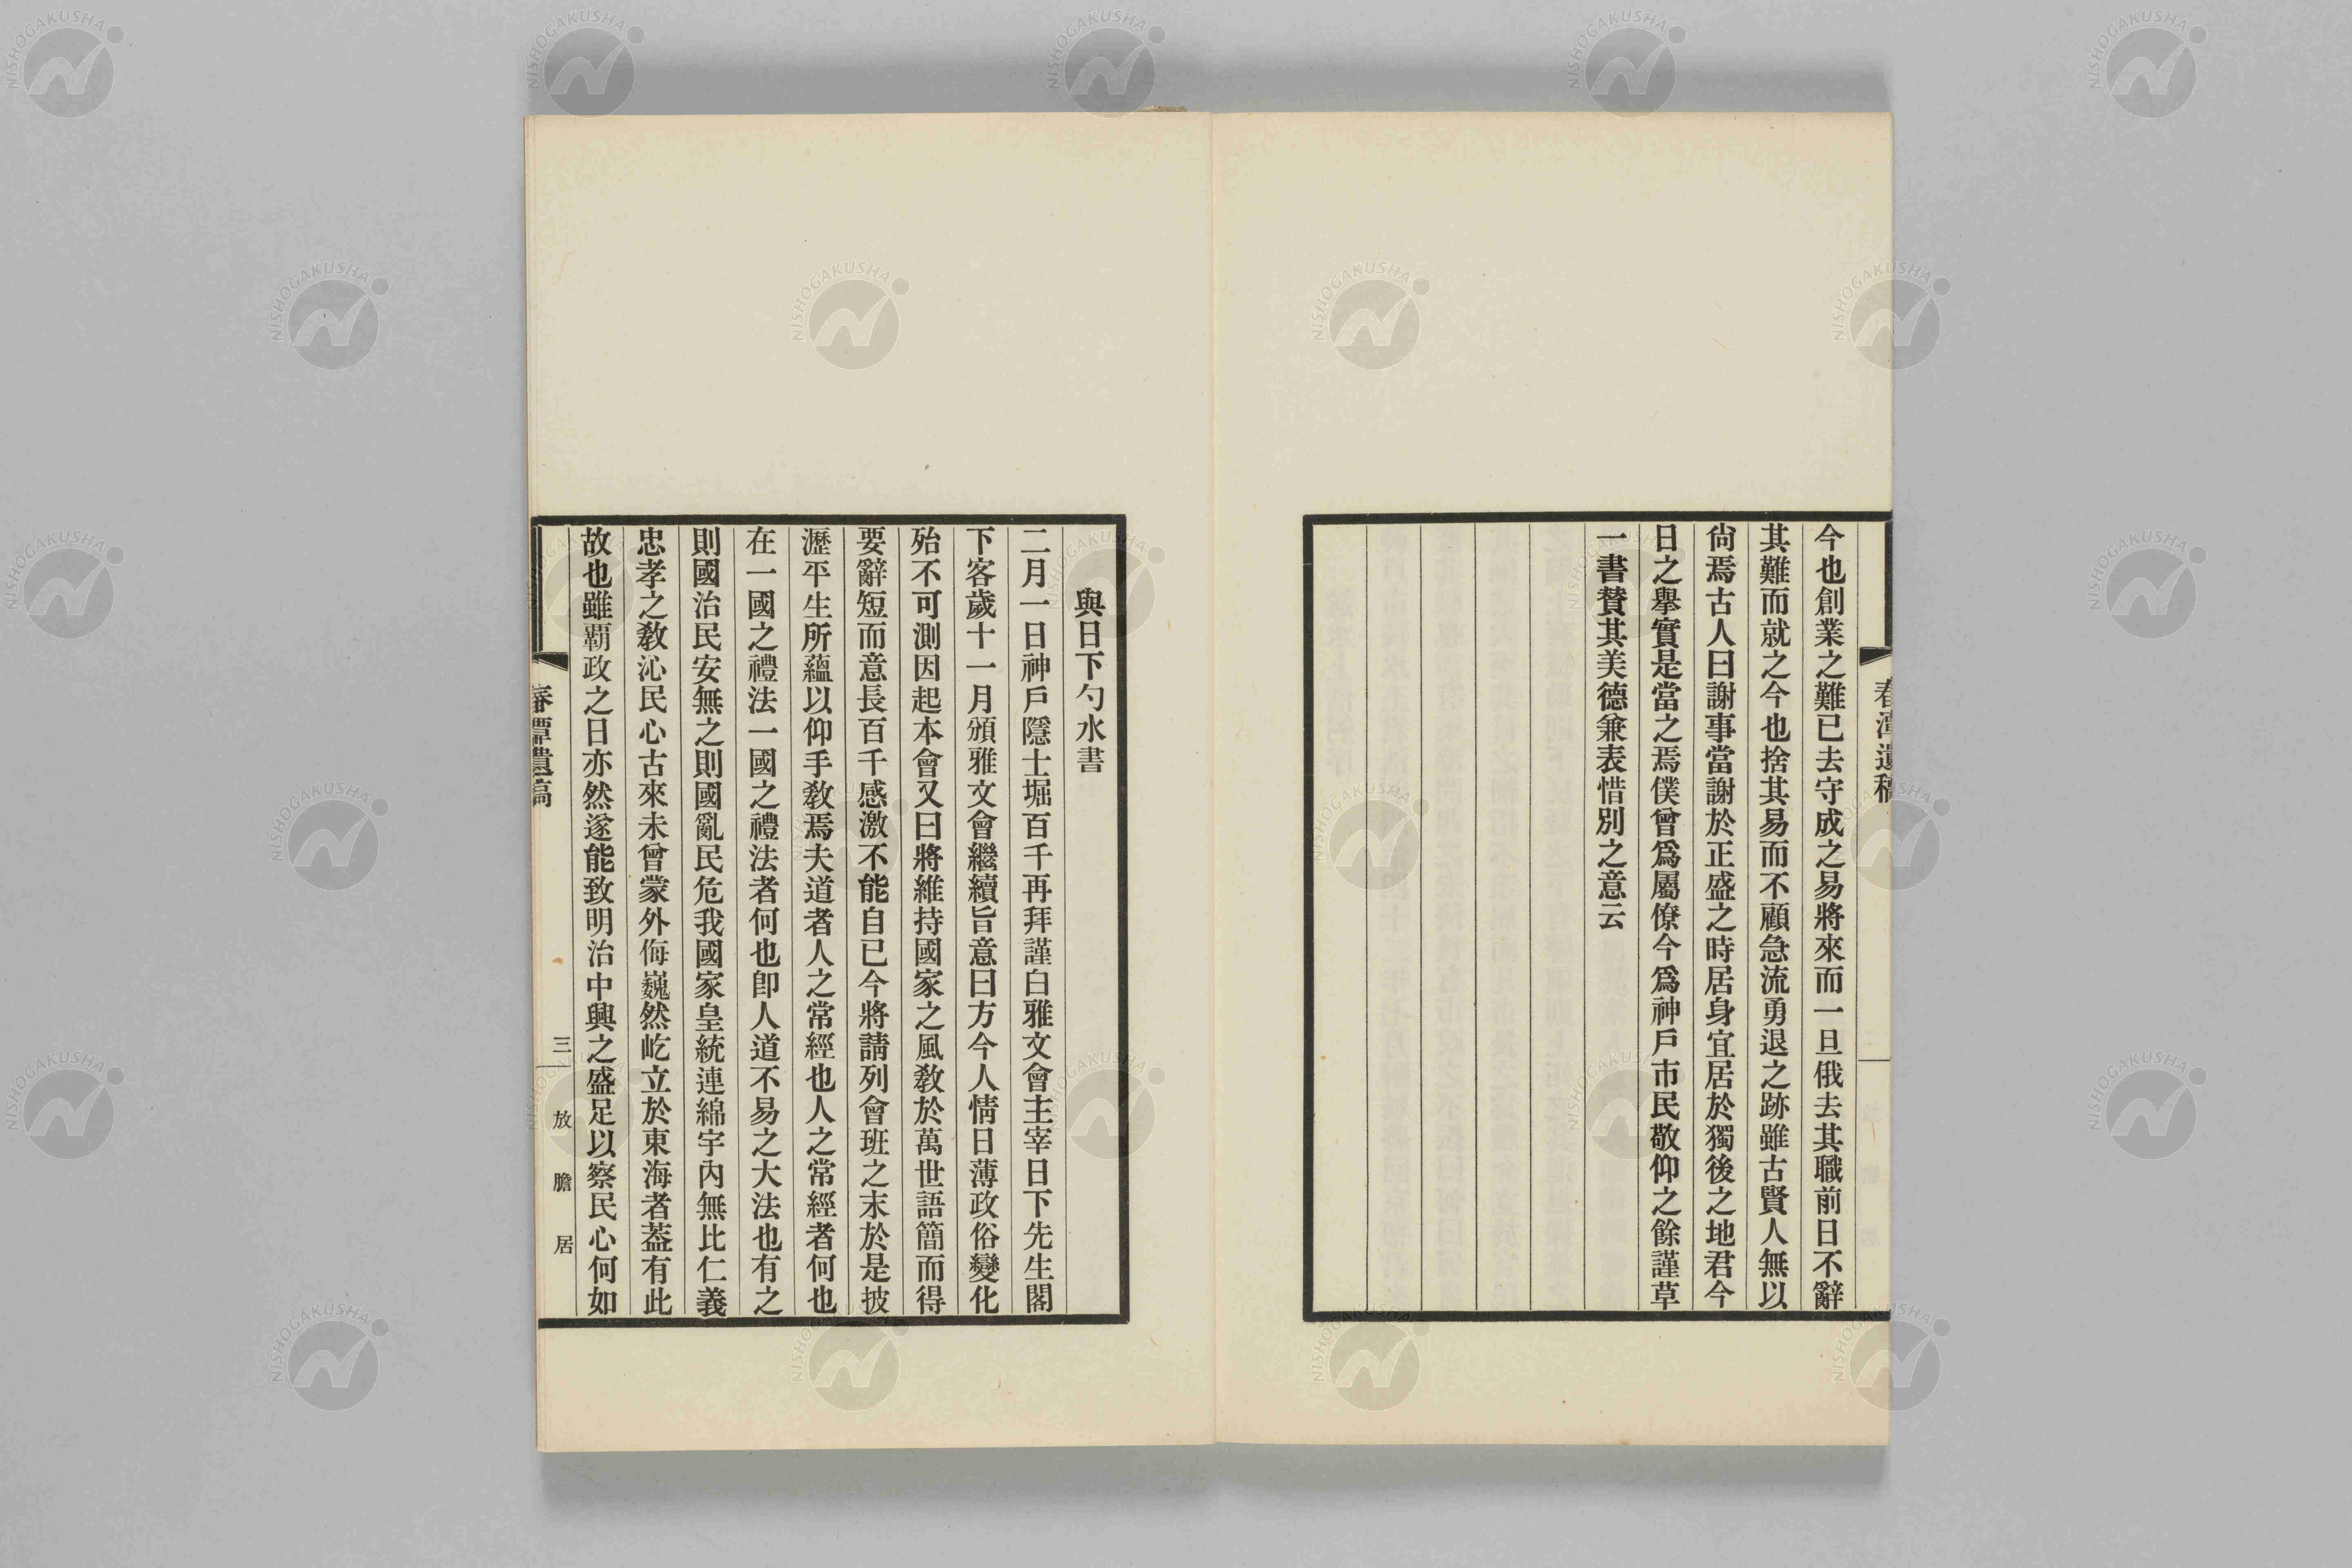 春潭遺稿
今也創業之難已去守成之易將來而一旦俄去其職前日不辭
其難而就之今也捨其易而不顧急流勇退之跡雖古賢人無以
尙焉古人曰謝事當謝於正盛之時居身宜居於獨後之地君今
日之擧實是當之焉僕曾爲屬僚今爲神戶市民敬仰之餘謹草
一書賛其美德兼表惜別之意云
與日下勺水書
二月一日神戶隱士堀百千再拜謹白雅文會主宰日下先生閣
下客歲十一月頒雅文會繼續旨意曰方今人情日薄政俗變化
殆不可測因起本會又曰將維持國家之風敎於萬世語簡而得
要辭短而意長百千感激不能自已今將請列會班之末於是披
瀝平生所蘊以仰手敎焉夫道者人之常經也人之常經者何也
在一國之禮法一國之禮法者何也卽人道不易之大法也有之
則國治民安無之則國亂民危我國家皇統連綿宇內無比仁義
忠孝之敎沁民心古來未曾蒙外侮巍然屹立於東海者蓋有此
故也雖覇政之日亦然遂能致明治中興之盛足以察民心何如
春潭遺稿
三
放膽居
NISHOGAKUSHA